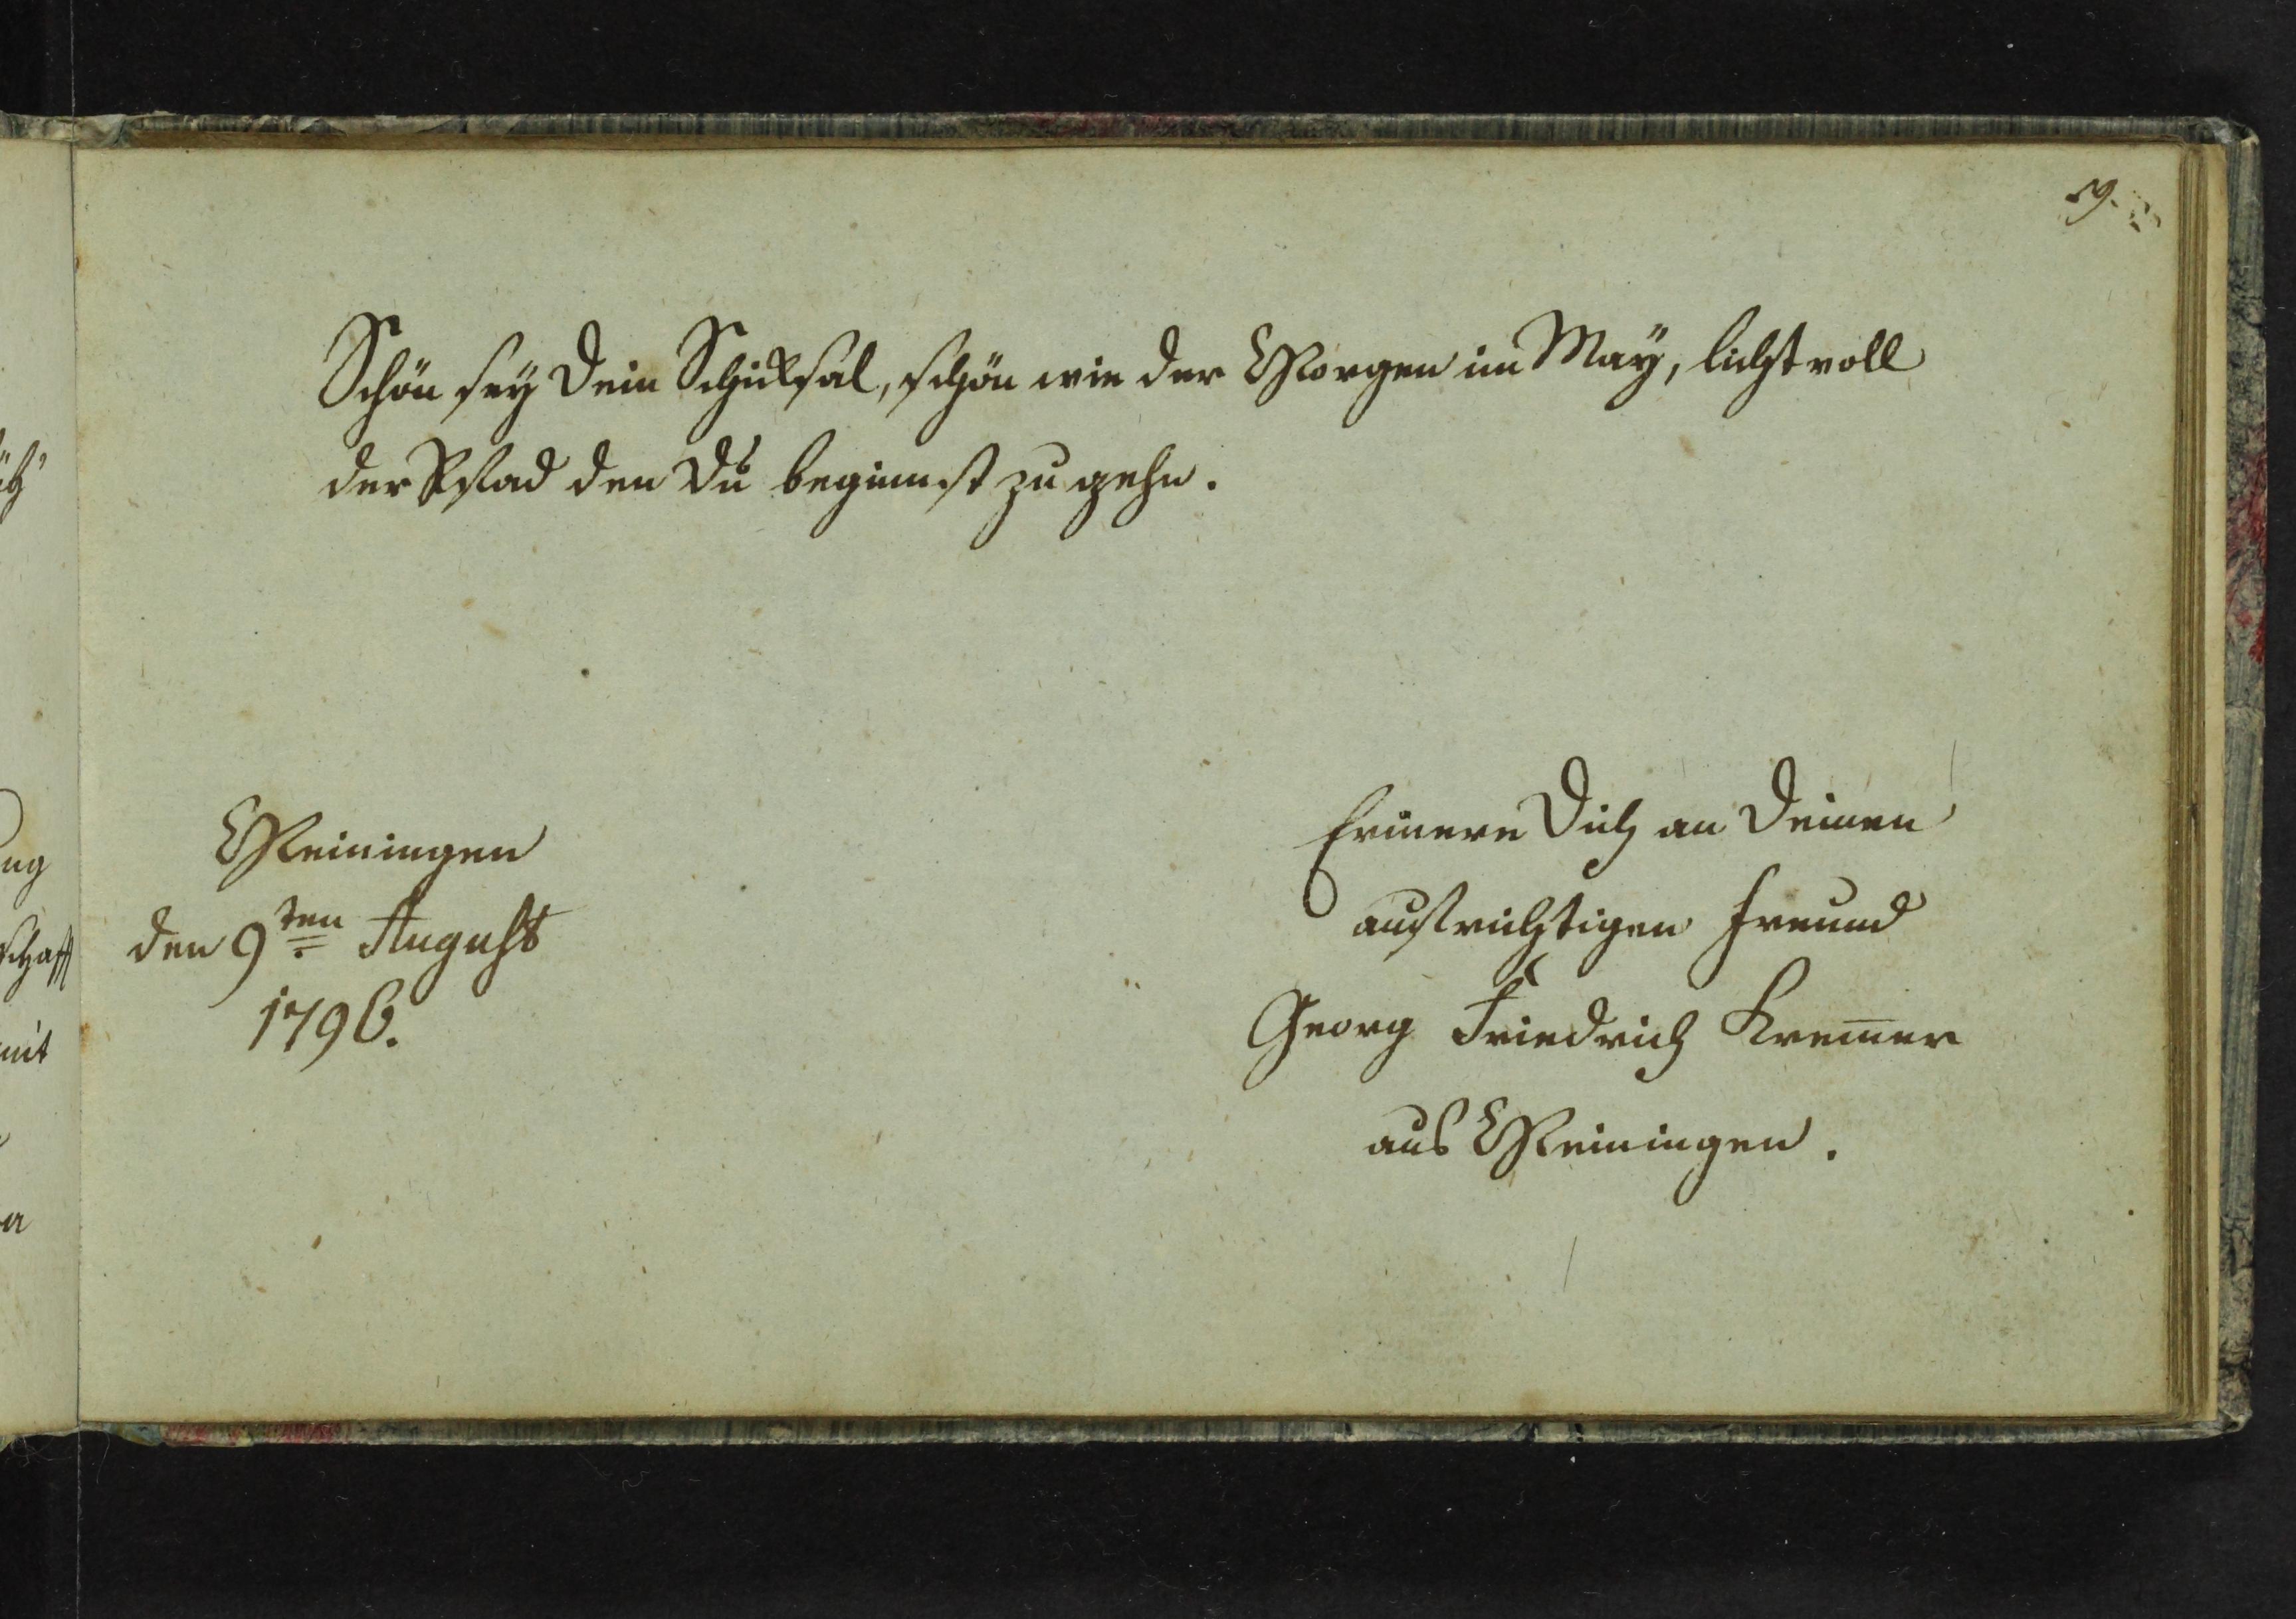 59.
Schön sey Dein Schicksal, schön wie der Morgen im May, lichtvoll
der Pfad den Du beginnst zu gehn.
Meiningen
den 9ten August
1796.
Erinere Dich an Deinen
aufrichtigen Freund
Georg Friedrich Krem̅er
aus Meiningen.